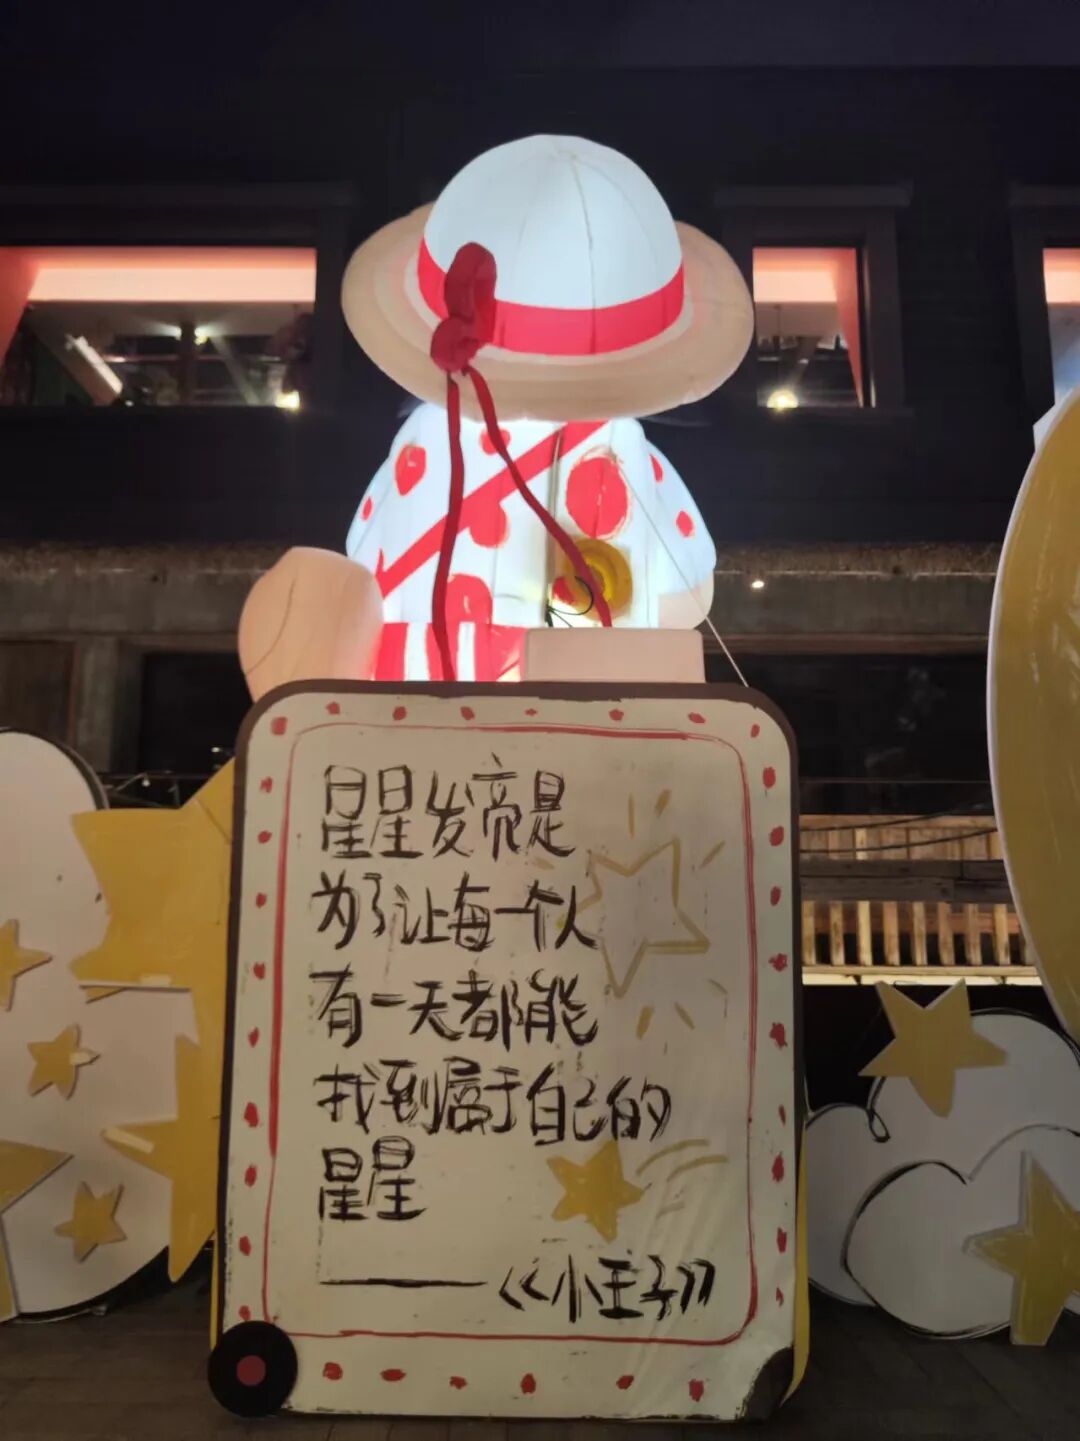 星星发亮是
为了让每一个人
有一天都能
找到属于自己的
星星
——《小王子》